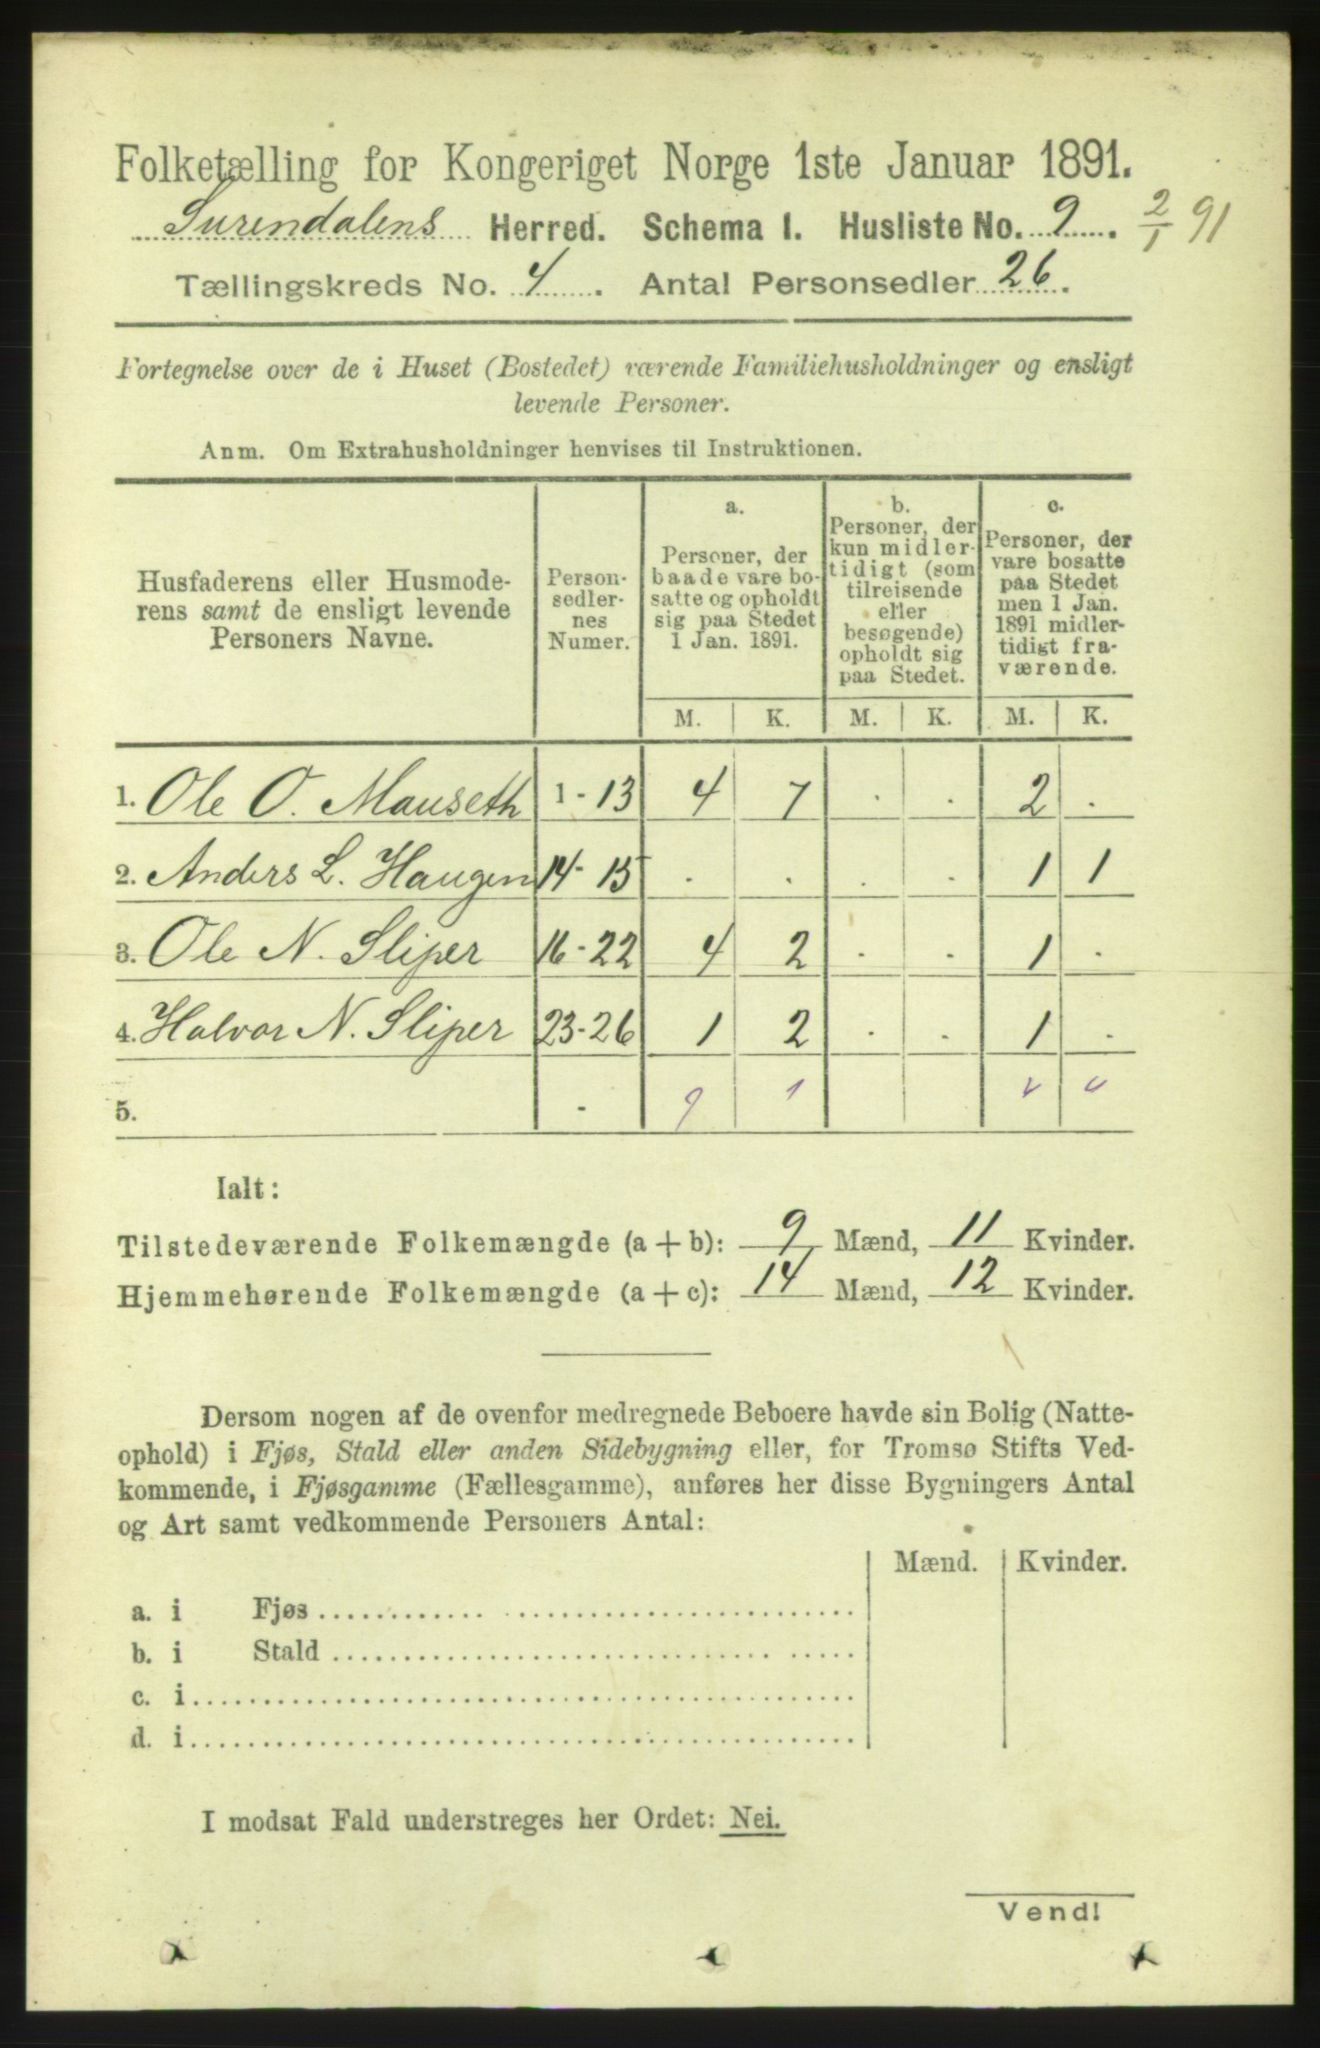 Folketælling for Kongeriget Norge 1ste Januar 1891.
Surendalens Herred. Schema I. Husliste No. 9. 2/1 91
Tællingskreds No. 4. Antal Personsedler 26.
Fortegnelse over de i Huset (Bostedet) værende Familiehusholdninger og ensligt
levende Personer.
Anm. Om Extrahusholdninger henvises til Instruktionen.
Husfaderens eller Husmode-
rens samt de ensligt levende
Personers Navne.
Person-
sedler-
nes
Numer.
a.
Personer, der
baade vare bo-
satte og opholdt
sig paa Stedet
1 Jan. 1891.
b.
Personer, der
kun midler-
tidigt (som
tilreisende
eller
besøgende)
opholdt sig
paa Stedet.
c.
Personer, der
vare bosatte
paa Stedet
men 1 Jan.
1891 midler-
tidigt fra-
værende.
M. K. M. K. M. K.
1. Ole O. Mauseth 1-13 4 7 . . 2 .
2. Anders L. Haugen 14-15 . . . . 1 1
3. Ole N. Sliper 16-22 4 2 . . 1 .
4. Halvor N. Sliper 23-26 1 2 . . 1 .
5. - 9
Ialt:
Tilstedeværende Folkemængde (a + b): 9 Mænd, 11 Kvinder.
Hjemmehørende Folkemængde (a + c): 14 Mænd, 12 Kvinder.
Dersom nogen af de ovenfor medregnede Beboere havde sin Bolig (Natte-
ophold) i Fjøs, Stald eller anden Sidebygning eller, for Tromsø Stifts Ved-
kommende, i Fjøsgamme (Fællesgamme), anføres her disse Bygningers Antal
og Art samt vedkommende Personers Antal:
Mænd. Kvinder.
a. i Fjøs
b. i Stald
c. i
d. i
I modsat Fald understreges her Ordet: Nei.
Vend!